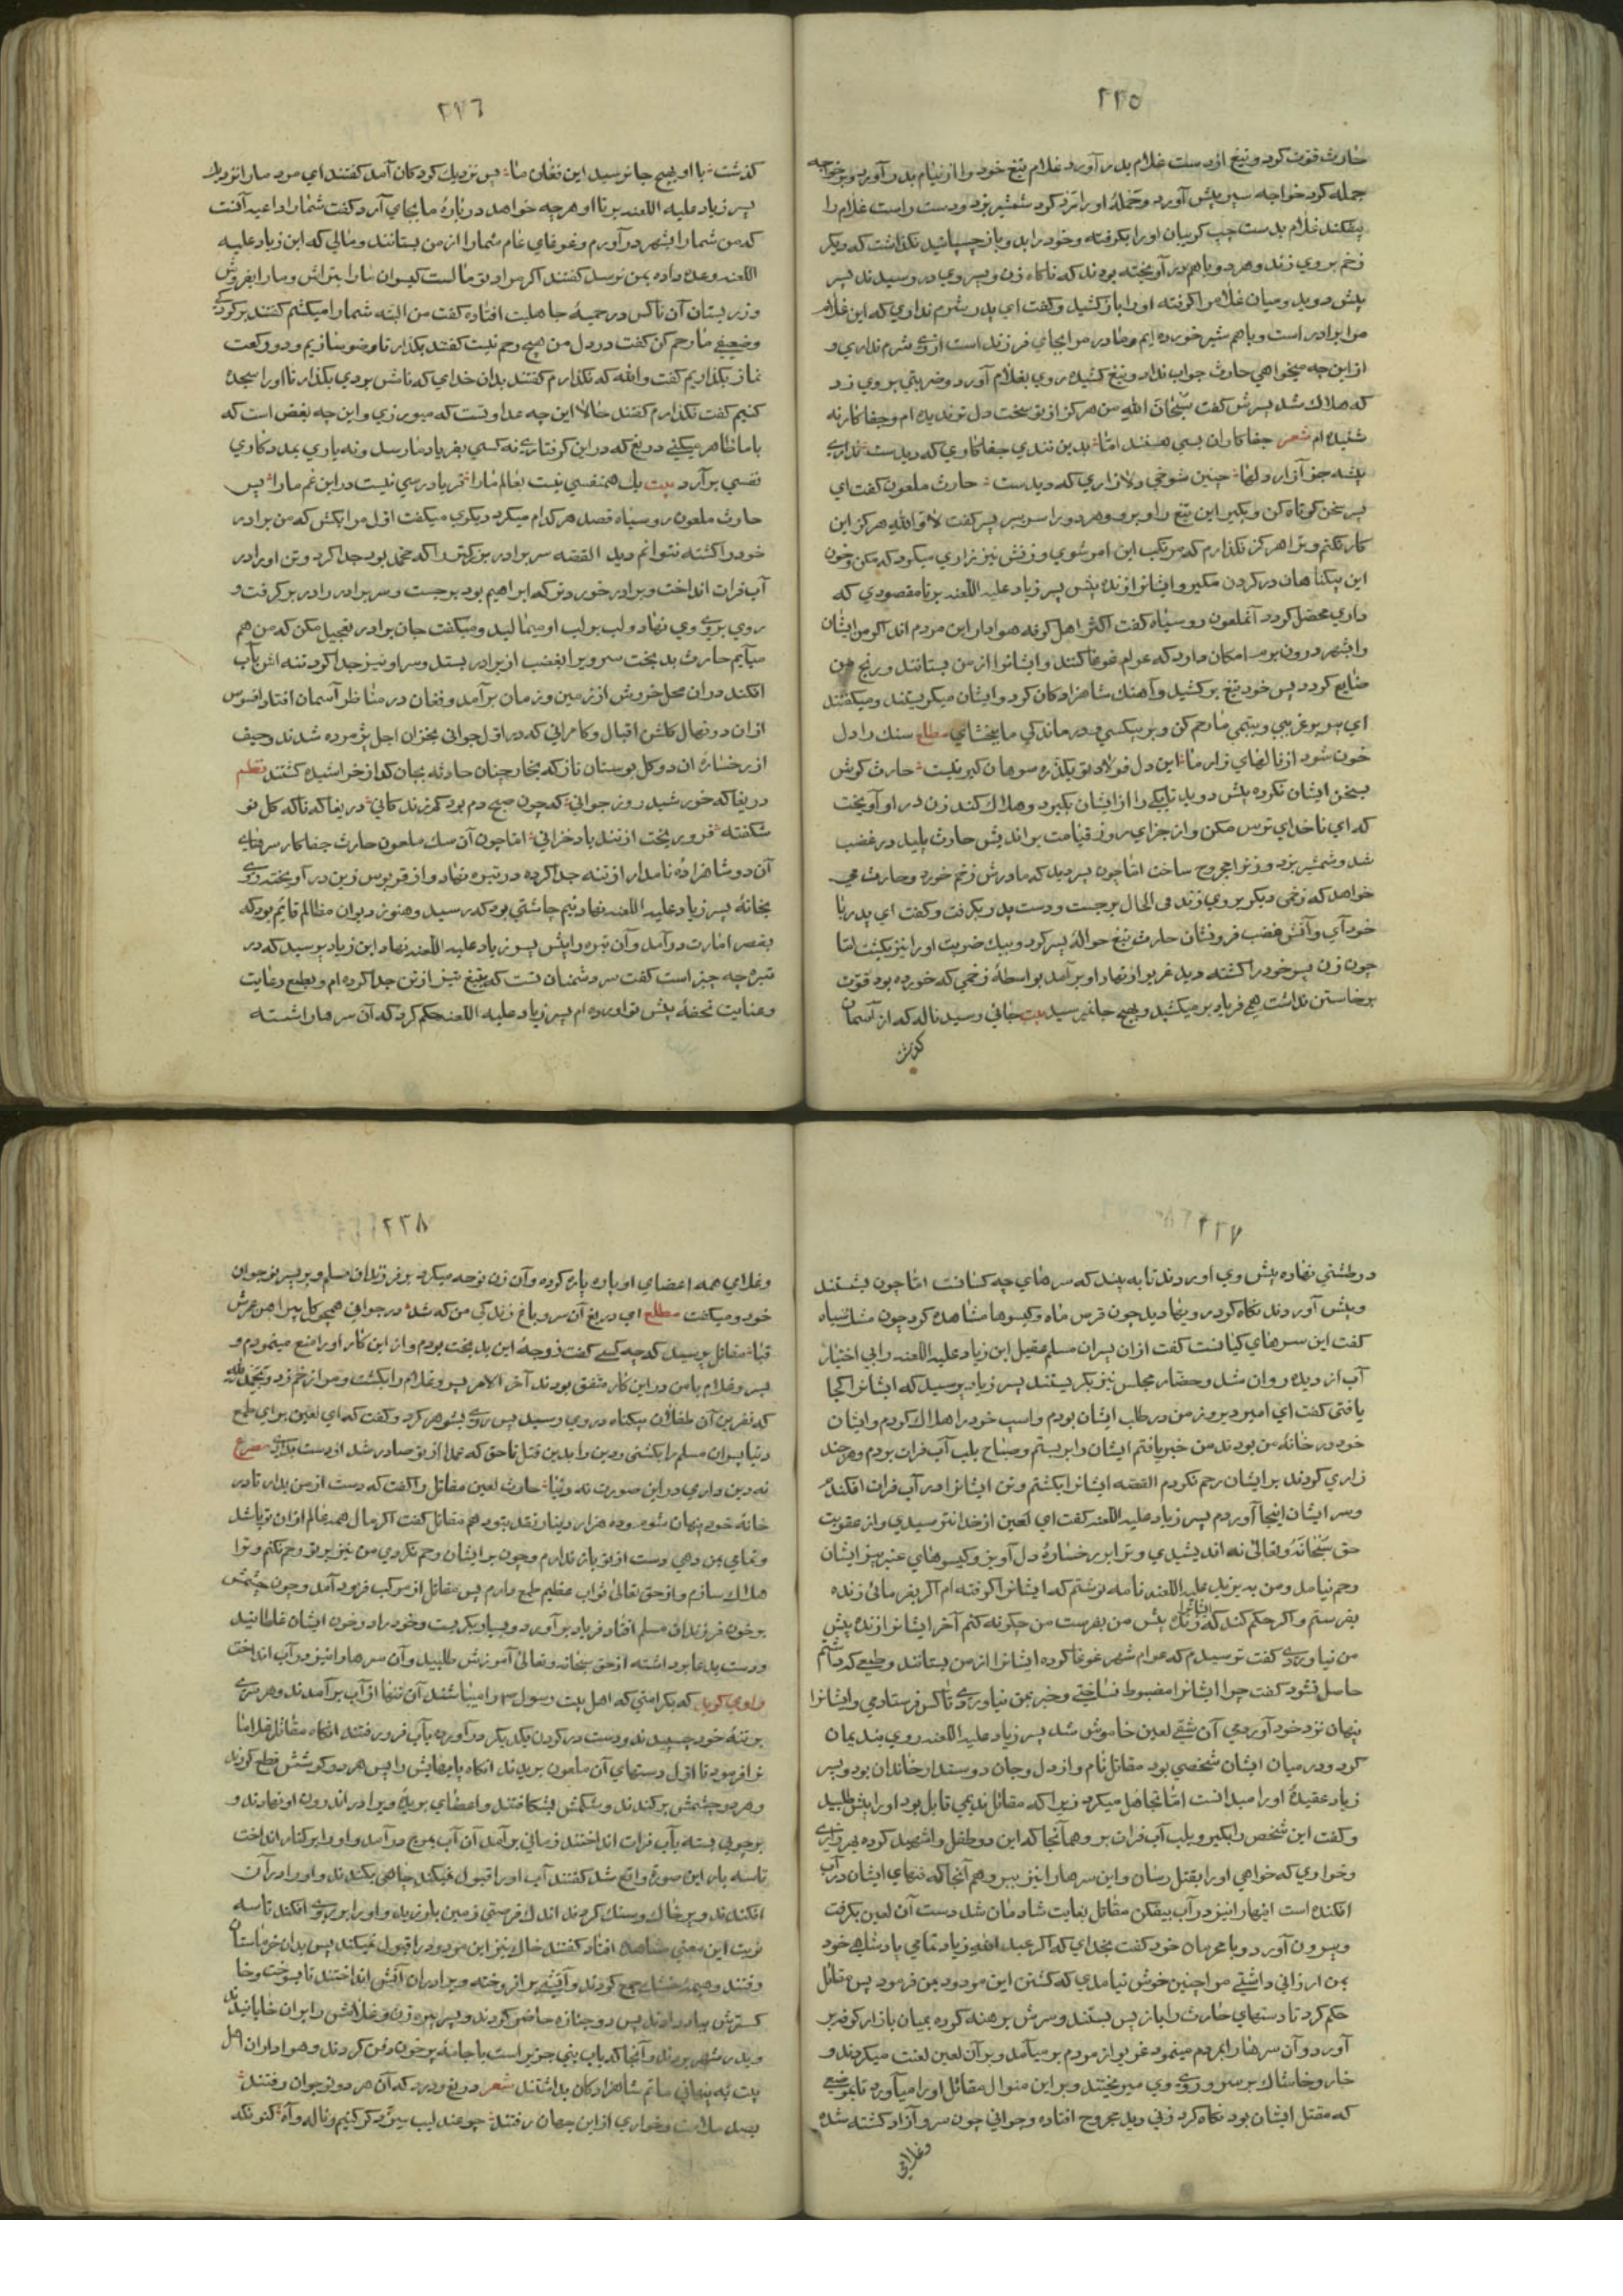 ٢٢٥
حارث قوت کرد و تیغ از دست غلام بدر آورد غلام تیغ خود را از نیام بدر آورد و بر خواجه
حمله کرد خواجه سپر پیش آورد و حملهٔ او را رد کرد شمشیر بزد و دست راست غلام را
بیفکند غلام بدست چپ کریبان او را بکرفته و خود را بدو باز چسپانید نکذاشت که دیکر
زخم بروی زند و هر دو باهم در آویخته بودند که ناکاه زن و پسر وی در رسیدند پسر
پیش دوید و میان غلام را کرفته او را باز کشید و کفت ای پدر شرم نداری که این غلام
مرا برادر است و باهم شیر خورده ایم و مادر مرا بجای فرزند است از وی شرم نداری و
از این چه میخواهی حارث جواب نداد و تیغ کشیده روی بغلام آورد و ضربتی بروی زد
که هلاک شد پسرش کفت سبحان الله من هرکز از تو سخت دل تر ندیده ام و جفا کارتر نه
شنیده ام شعر جفا کاران بسی هستند اما بدین تندی جفا کاری که دیدست نداری
پیشه جز آزار دلها چنین شوخی دلازاری که دیدست حارث ملعون کفت ای
پسر سخن کوتاه کن و بکیر این تیغ را و برو و هر دو را سر ببر پسر کفت لا والله هرکز این
کار نکنم و ترا هرکز نکذارم که مرتکب این امر شوی و زنش نیز زاری میکرد که مکن و خون
این بیکناهان در کردن مکیر و ایشانرا زنده پیش پسر زیاد علیه اللعنه بر تا مقصودی که
داری محصل کردد آنملعون رو سیاه کفت اکثر اهل کوفه هوادار این مردم اند اکر من ایشان
را بشهر درون برم امکان دارد که عوام غوغا کنند و ایشانرا از من بستانند و رنج من
ضایع کردد پس خود تیغ بر کشید و آهنک شاهزادکان کرد و ایشان میکریستند و میکفتند
ای پیر بر غریبی و یتیمی ما رحم کن و بر بیکسی و در ماندکی ما ببخشای مطلع سنک را دل
خون شود از نالهای زار ما این دل فولاد تو یکذره سوهان کیر نیست حارث کوش
بسخن ایشان نکرده پیش دوید تا یکی را از ایشان بکیرد و هلاک کند زن در او آویخت
که ای ناخدای ترس مکن و از جزای روز قیامت بر اندیش حارث پلید در غضب
شد و شمشیر بزد و زنرا مجروح ساخت اما چون پسر دید که مادرش زخم خورد و حارث می
خواهد که زخمی دیکر بروی زند فی الحال برجست و دست پدر بکرفت و کفت ای پدر با
خود آی و آتش غضب فرو نشان حارث تیغ حوالهٔ پسر کرد و بیک ضربت او را نیز بکشت اما
چون زن پسر خود را کشته دید غریو از نهاد او بر آمد بواسطهٔ زخمی که خورده بود قوت
برخاستن نداشت همی فریاد بر میکشید و بهیچ جا نمیرسید بیت جائی رسید ناله که از آسمان
کذشت
٢٢٦
کذشت با او بهیچ جا نرسید این فغان ما پس نزدیک کودکان آمد کفتند ای مرد ما را نزدیک
پسر زیاد علیه اللعنه بر تا او هر چه خواهد در بارهٔ ما بجای آرد کفت شما را داعیه آنست
که من شما را بشهر در آورم و غوغای عام شما را از من بستانند و مالی که ابن زیاد علیه
اللعنه وعده داده بمن نرسد کفتند اکر مراد تو مالست کیسوان ما را بتراش و ما را بفروش
و زر بستان آن ناکس در حمیهٔ جاهلیت افتاده کفت من البته شما را میکشم کفتند بر کودکی
و ضعیفی ما رحم کن کفت در دل من هیچ رحم نیست کفتند بکذار تا وضو سازیم و دو رکعت
نماز بکذاریم کفت والله که نکذارم کفتند بدان خدای که ناش بردی بکذار تا او را سجده
کنیم کفت نکذارم کفتند حالا این چه عداوتست که میورزی و این چه بغض است که
با ما ظاهر میکنی دریغ که در این کرفتاری نه کسی بفریاد ما رسد و نه یاری بمددکاری
نفسی بر آرد بیت یک همنفسی نیست بعالم ما را فریادرسی نیست در این غم ما را پس
حارث ملعون رو سیاه قصد هر کدام میکرد دیکری میکفت اول مرا بکش که من برادر
خود را کشته نتوانم دید القصه سر برادر بزرکتر را که محمد بود جدا کرد و تن او را در
آب فرات انداخت و برادر خوردتر که ابراهیم بود برجست و سر برادر را در بر کرفت و
روی بروی وی نهاد و لب بر لب او میمالید و میکفت جان برادر تعجیل مکن که من هم
میآیم حارث بدبخت سر ویرا بغضب از برادر بستد و سر او نیز جدا کرد تنه اش بآب
افکند در ان محل خروش از زمین و زمان بر آمد و فغان در مناظر آسمان افتاد افسوس
از ان دو نهال کلشن اقبال و کامرانی که در اول جوانی بخزان اجل پژمرده شدند و حیف
از رخسارهٔ ان دو کل بوستان ناز که بخار چنان حادثه بجان کداز خراشیده کشتند نظم
دریغا که خورشید روز جوانی که چون صبح دم بود کم زندکانی دریغا که ناکه کل نو
شکفته فرو ریخت از تندباد خزانی اما چون آن سک ملعون حارث جفا کار سرهای
آن دو شاهزادهٔ نامدار از تنه جدا کرده در توبره نهاد و از قربوس زین در آویخته روی
بخانهٔ پسر زیاد علیه اللعنه نهاد نیم چاشتی بود که در رسید و هنوز دیوان مظالم قایم بود که
بقصر امارت در آمد و آن توبره را پیش پسر زیاد علیه اللعنه نهاد ابن زیاد پرسید که در
توبره چه چیز است کفت سر دشمنان تست که بتیغ تیز از تن جدا کرده ام و بطمع رعایت
و عنایت تحفهٔ پیش تو اورده ام پسر زیاد علیه اللعنه حکم کرد که آن سرها را شسته
٢٢٧
در طشتی نهاده پیش وی اورند تا به بیند که سرهای چه کسانست اما چون بشستند
و پیش آوردند نکاه کرد رویها دید چون قرص ماه و کیسوها مشاهده کرد چون مشک سیاه
کفت این سرهای کیانست کفت از ان پسران مسلم عقیل ابن زیاد علیه اللعنه را بی اختیار
آب از دیده روان شد و حضار مجلس نیز بکریستند پسر زیاد پرسید که ایشانرا کجا
یافتی کفت ای امیر دیروز من در طلب ایشان بودم و اسب خود را هلاک کردم و ایشان
خود در خانهٔ من بودند من خبر یافتم ایشان را بربستم و صباح بلب آب فرات بردم و هر چند
زاری کردند بر ایشان رحم نکردم القصه ایشانرا بکشتم و تن ایشانرا در آب فرات افکندم
و سر ایشان اینجا آوردم پسر زیاد علیه اللعنه کفت ای لعین از خدا نترسیدی و از عقوبت
حق سبحانه و تعالی نه اندیشیدی و ترا بر رخسارهٔ دل آویز و کیسوهای عنبر بیز ایشان
رحم نیامد و من به یزید علیه اللعنه نامه نوشتم که ایشانرا کرفته ام اکر بفرمائی زنده
بفرستم و اکر حکم کند که ایشانرا زنده پیش من بفرست من چکونه کنم آخر ایشانرا زنده پیش
من نیاوردی کفت ترسیدم که عوام شهر غوغا کرده ایشانرا از من بستانند و طمعی که داشتم
حاصل نشود کفت چرا ایشانرا مضبوط نساختی و خبر بمن نیاوردی تا کس فرستادمی و ایشانرا
پنهان نزد خود آوردمی آن شقی لعین خاموش شد پسر زیاد علیه اللعنه روی بندیمان
کرد و در میان ایشان شخصی بود مقاتل نام و از دل و جان دوستدار خاندان بود و پسر
زیاد عقیدهٔ او را میدانست اما تجاهل میکرد زیرا که مقاتل ندیمی قابل بود او را پیش طلبید
و کفت این شخص را بکیر و بلب آب فرات بر و همانجا که این دو طفل را شهید کرده بهر زاری
و خواری که خواهی او را بقتل رسان و این سرها را نیز ببر و هم آنجا که تنهای ایشان در آب
افکنده است اینها را نیز در آب بیفکن مقاتل بغایت شادمان شد دست آن لعین بکرفت
و بیرون آورد و با محرمان خود کفت بخدای که اکر عبد الله زیاد تمامی پادشاهی خود
بمن ارزانی داشتی مرا چنین خوش نیامدی که کشتن این مردود بمن فرمود پس مقاتل
حکم کرد تا دستهای حارث را باز پس بستند و سرش برهنه کرده بمیان بازار کوفه بر
آورد و آن سرها را بمردم مینمود غریو از مردم بر میآمد و بر آن لعین لعنت میکردند و
خار و خاشاک بر سر و روی وی میریختند و بر این منوال مقاتل او را میآورد تا بموضعی
که مقتل ایشان بود نکاه کرد زنی دید مجروح افتاده و جوانی چون سرو آزاد کشته شده
وغلامی
٢٢٨
وغلامی همه اعضای او پاره پاره کرده و آن زن نوحه میکرد بر فرزندان مسلم و بر پسر نوجوان
خود و میکفت مطلع ای دریغ آن سرو باغ زندکی من که شد در جوانی همچو کل پیراهن عمرش
قبا مقاتل پرسید که چه کسی کفت زوجهٔ این بدبخت بودم و از این کار او را منع مینمودم و
پسر و غلام با من در این کار متفق بودند آخر الامر پسر و غلام را بکشت و مرا زخم زد و بحمد لله
که نفرین آن طفلان بیکناه در وی رسید پس روی بشوهر کرد و کفت که ای لعین برای طمع
دنیا پسران مسلم را بکشتی و دین را بدین قتل ناحق که عمدا از تو صادر شد از دست بدادی مصرع
نه دین داری در این صورت نه دنیا حارث لعین مقاتل را کفت که دست از من بدار تا در
خانهٔ خود پنهان شوم و ده هزار دینار نقد بتو دهم مقاتل کفت اکر مال همه عالم از ان تو باشد
و تمامی بمن دهی دست از تو باز ندارم و چون بر ایشان رحم نکردی من نیز بر تو رحم نکنم و ترا
هلاک سازم و از حق تعالی ثواب عظیم طمع دارم پس مقاتل از مرکب فرود آمد و چون چشمش
بر خون فرزندان مسلم افتاد فریاد بر آورد و بسیار بکریست و خود را در خون ایشان غلطانید
و دست بدعا برداشته از حق سبحانه و تعالی آمرزش طلبید و آن سرها را نیز در آب انداخت
راوی کوید که بکرامتی که اهل بیت رسول را میباشند آن تنها از آب بر آمدند و هر سری
بر تنهٔ خود چسپیدند و دست در کردن یکدیکر در آورده بآب فرو رفتند انکاه مقاتل غلامان
را فرمود تا اول دستهای آن ملعون بریدند انکاه پاهایش را پس هر دو کوشش قطع کردند
و هر دو چشمش بر کندند و شکمش بشکافتند و اعضای بریدهٔ ویرا در اندرون او نهادند و
بر چوبی بسته بآب فرات انداختند زمانی بر آمد آن آب بموج در آمد و او را بر کنار انداخت
تا سه بار این صوره واقع شد کفتند آب او را قبول نمیکند چاهی بکندند و او را در آن
افکندند و پر خاک و سنک کردند اندک فرصتی زمین بلرزید و او را بر روی افکند تا سه
نوبت این معنی مشاهده افتاد کفتند خاک نیز این مردود را قبول نمیکند پس بدان خرماستان
رفتند و هیمهٔ خشک جمع کردند و آتشی بر افروخته ویرا در ان آتش انداختند تا بسوخت و خا
کسترش بباد دادند پس دو جنازه حاضر کردند و پسر پیره زن و غلامش را بر ان خابانیدند
و بدر شهر بردند و آنجا که باب بنی خزیر است با جامهٔ پر خون دفن کردند و هواداران اهل
بیت به پنهانی ماتم شاهزادکان بداشتند شعر دریغ و درد که آن هر دو نوجوان رفتند
بصد ملامت و خواری از این جهان رفتند چو عندلیب سزد کر کنیم ناله و آه کنونکه